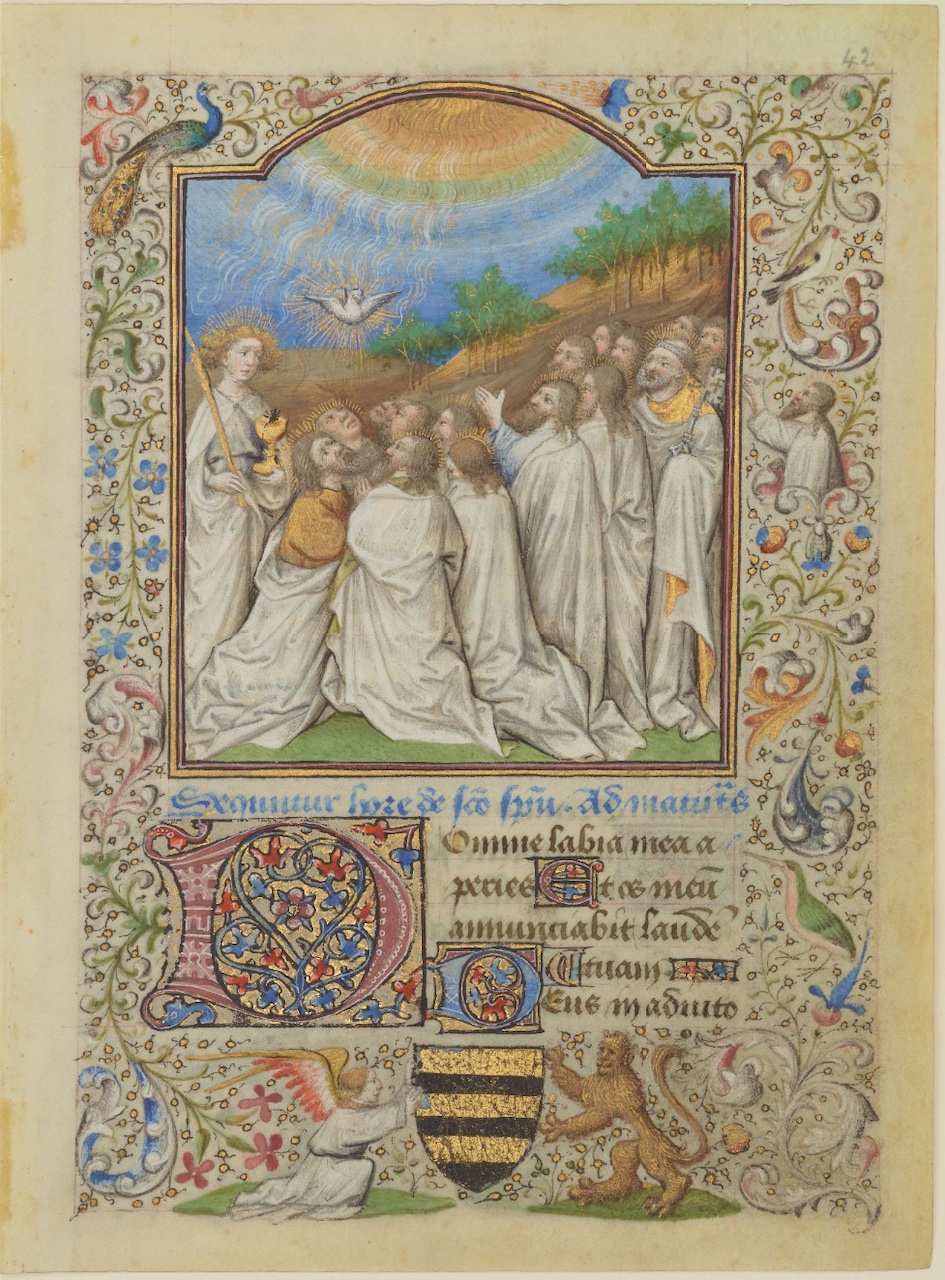 42
Sequntur hore de sc̄o sp̄u. Ad matut̄s
Domine labia mea a
peries Et os meū
annunciabit laudē
tuam
Deus in adiuto